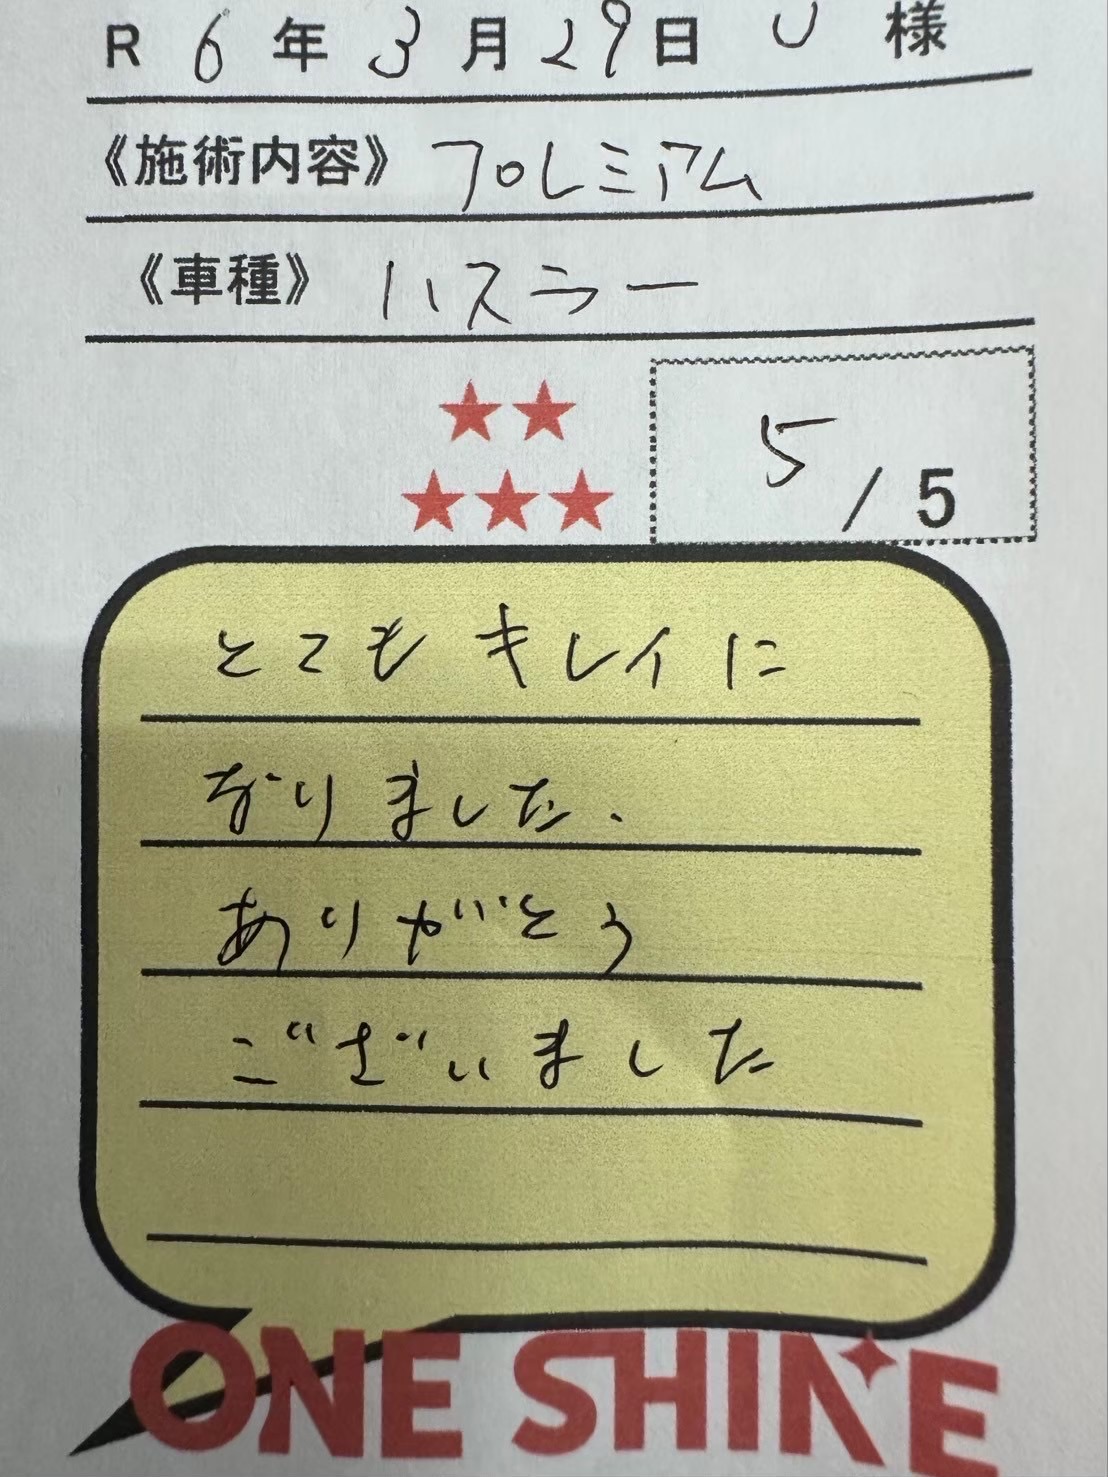 R 6 年 3 月 29 日 U 様
《施術内容》 プレミアム
《車種》 ハスラー
★★
★★★
5 / 5
とても キレイに
なりました.
ありがとう
ございました
ONE SHINE